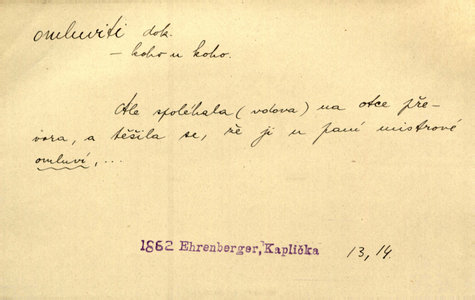 omluviti dok.
– koho u koho.
Ale spoléhala (vdova) na otce pře-
vora, a těšila se, že ji u paní mistrové
omluví, ...
1862 Ehrenberger, Kaplička 13, 14.